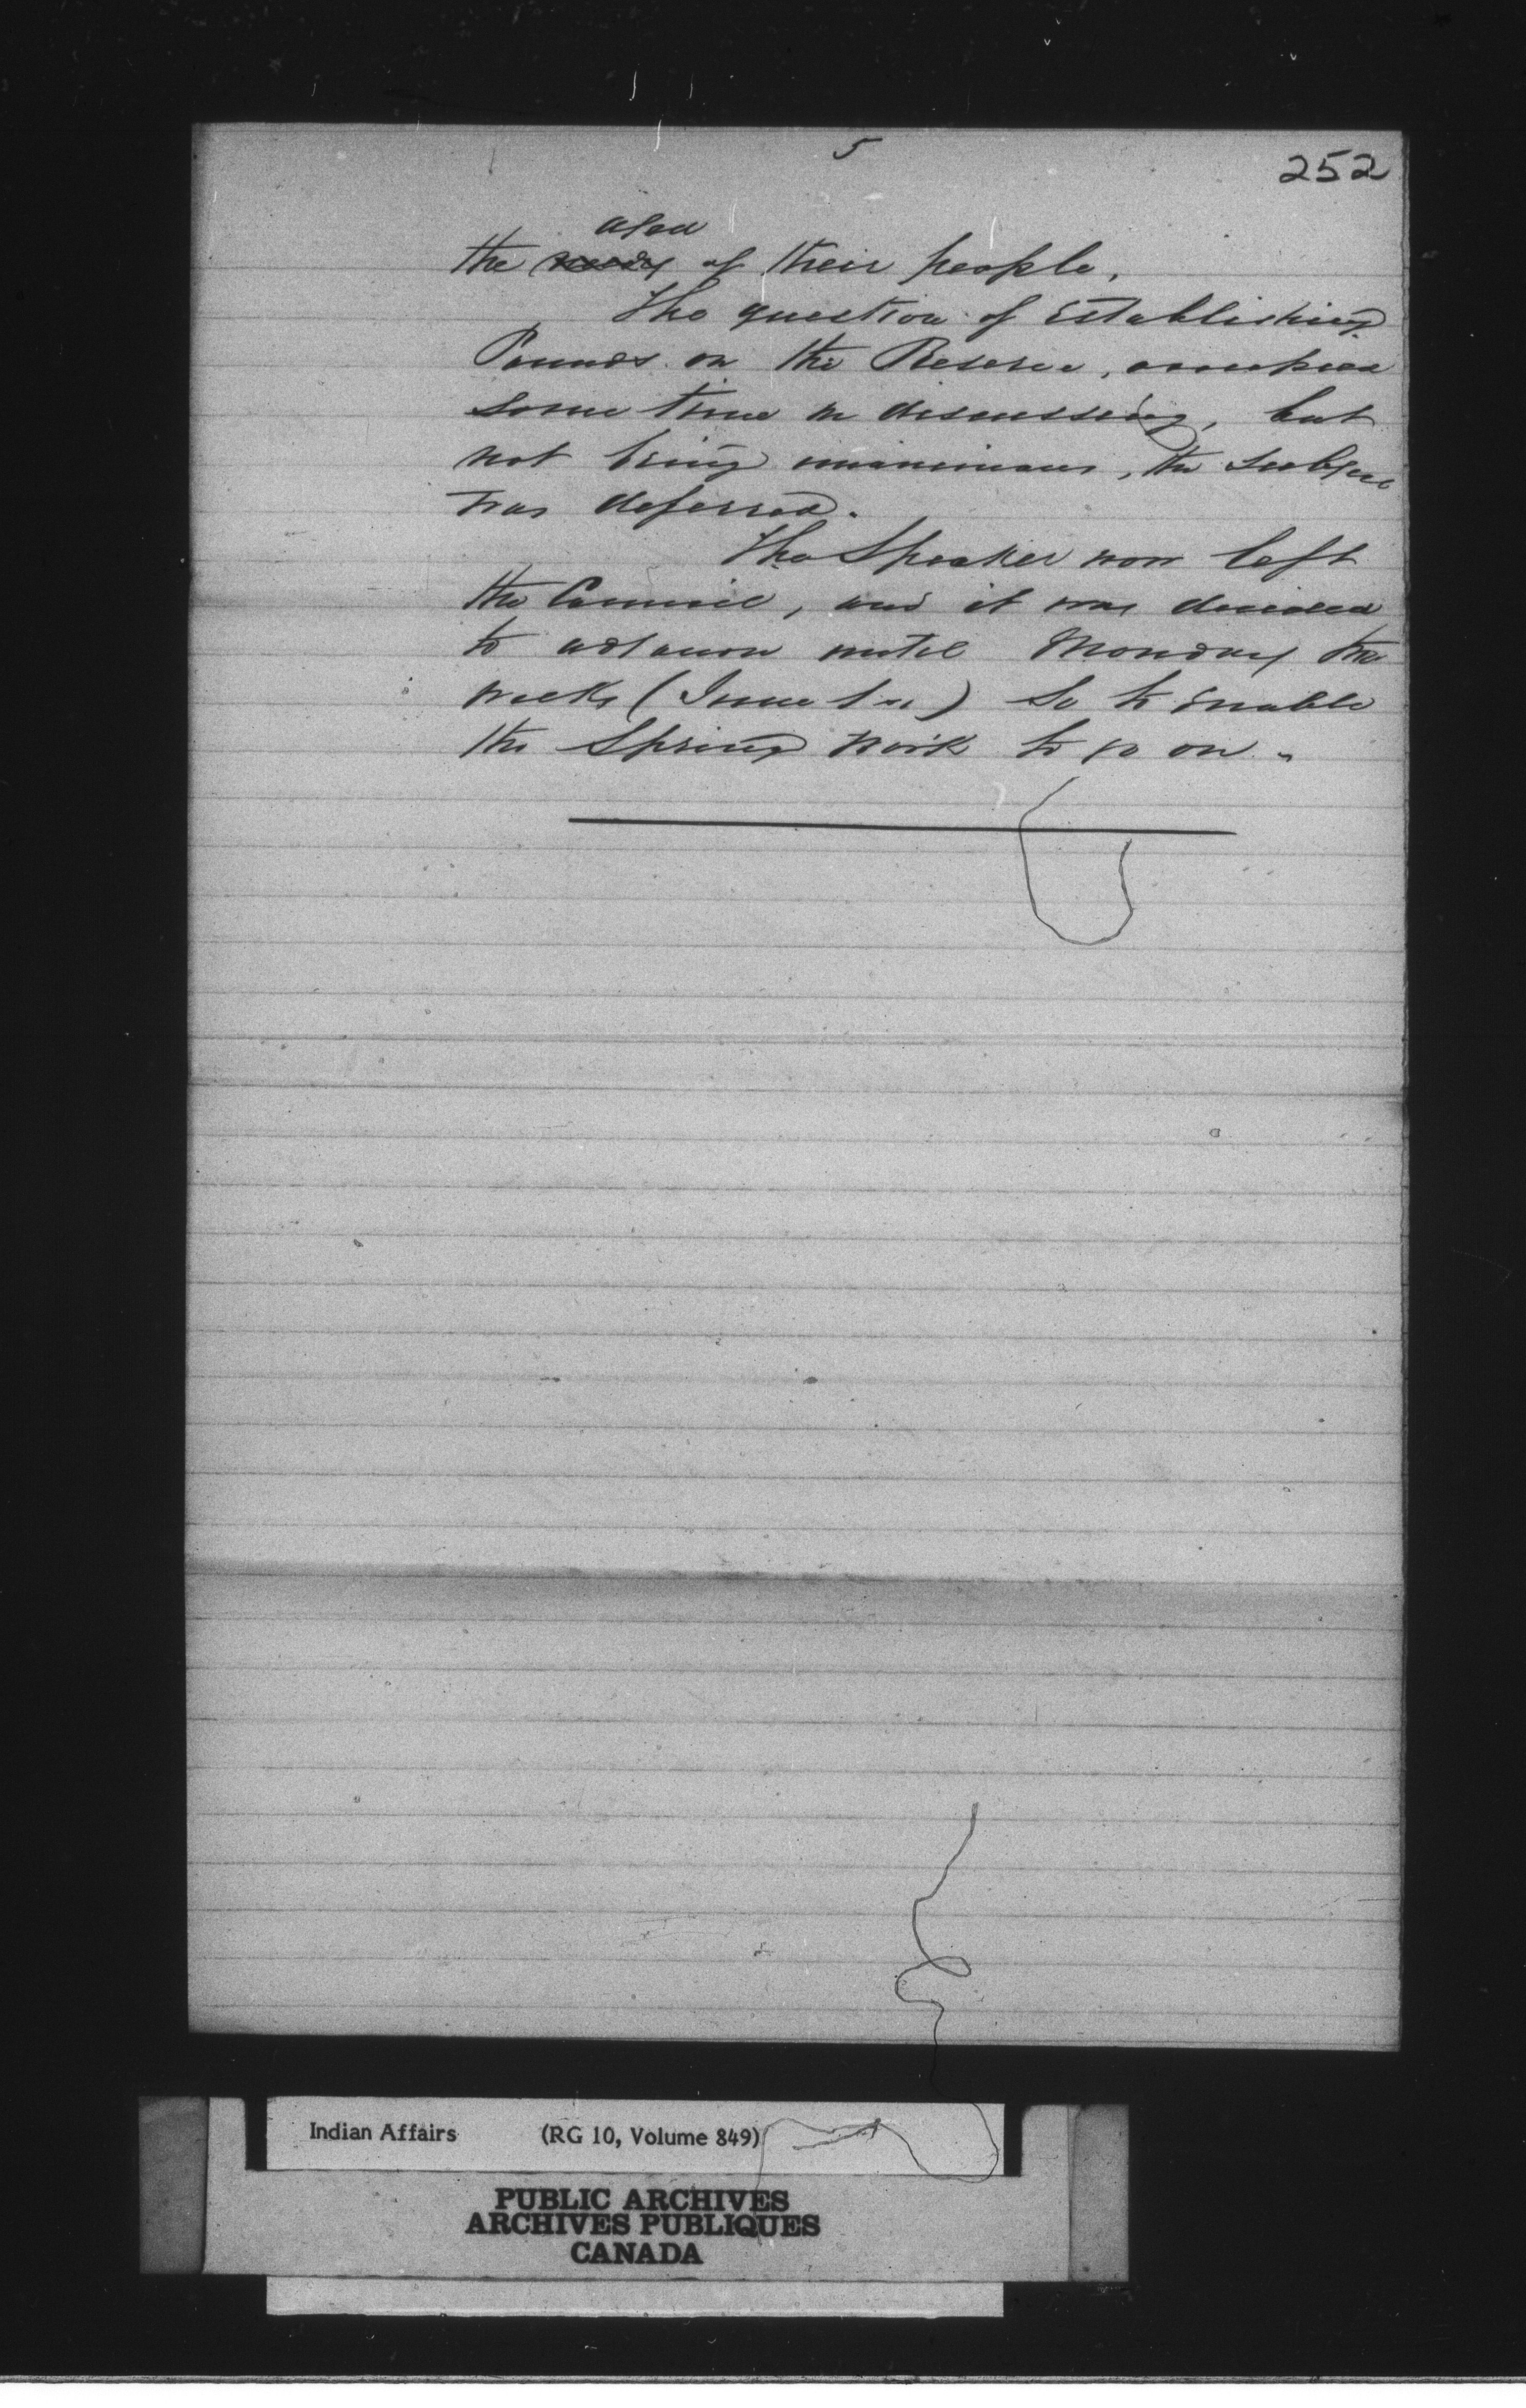 5
252
aged
the needy of their people.
The question of Establishing
Pounds on the Reserve, occupied
some time in discussing, but
not being unanimous, the Subject
was deferred.
The Speaker now left
the Council, and it was decided
to adjourn until Monday two
weeks (June 1st) so to enable
the Spring work to go on.
Indian Affairs (RG 10, Volume 849)
PUBLIC ARCHIVES
ARCHIVES PUBLIQUES
CANADA